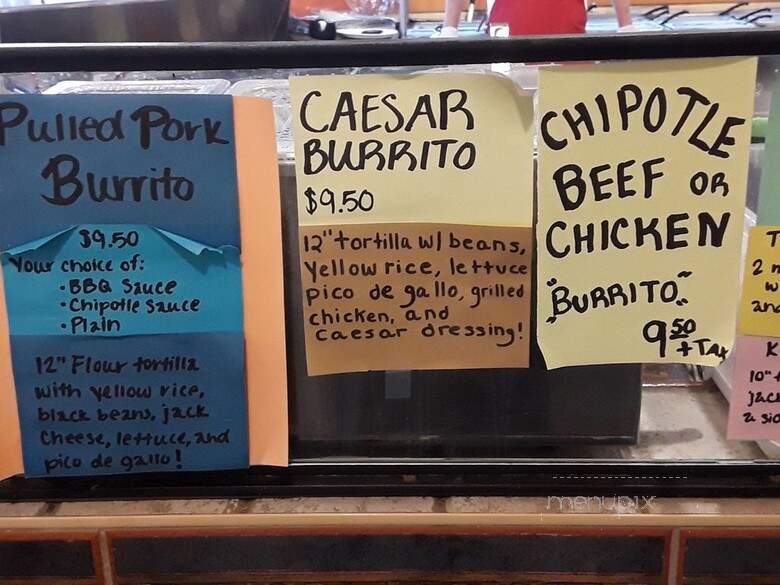 Pulled Pork
Burrito
$9.50
Your choice of:
• BBQ Sauce
• Chipotle Sauce
• Plain
12" Flour tortilla
with yellow rice,
black beans, jack
Cheese, lettuce, and
pico de gallo!
CAESAR
BURRITO
$9.50
12" tortilla w/ beans,
Yellow rice, lettuce
pico de gallo, grilled
chicken, and
Caesar dressing!
CHIPOTLE
BEEF OR
CHICKEN
"BURRITO"
9.50
+ TAX
2
10"
menupix